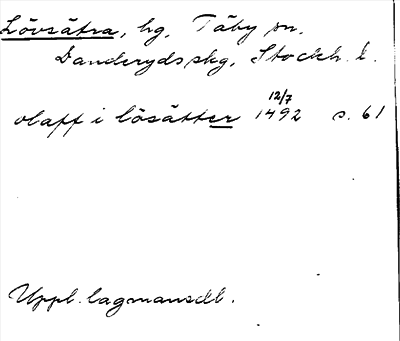 Lövsätra, hg, Täby sn,
Danderyds skg, Stockh. l.
12/7
olaff i lösätter 1492 s. 61
Uppl. lagmansdb.